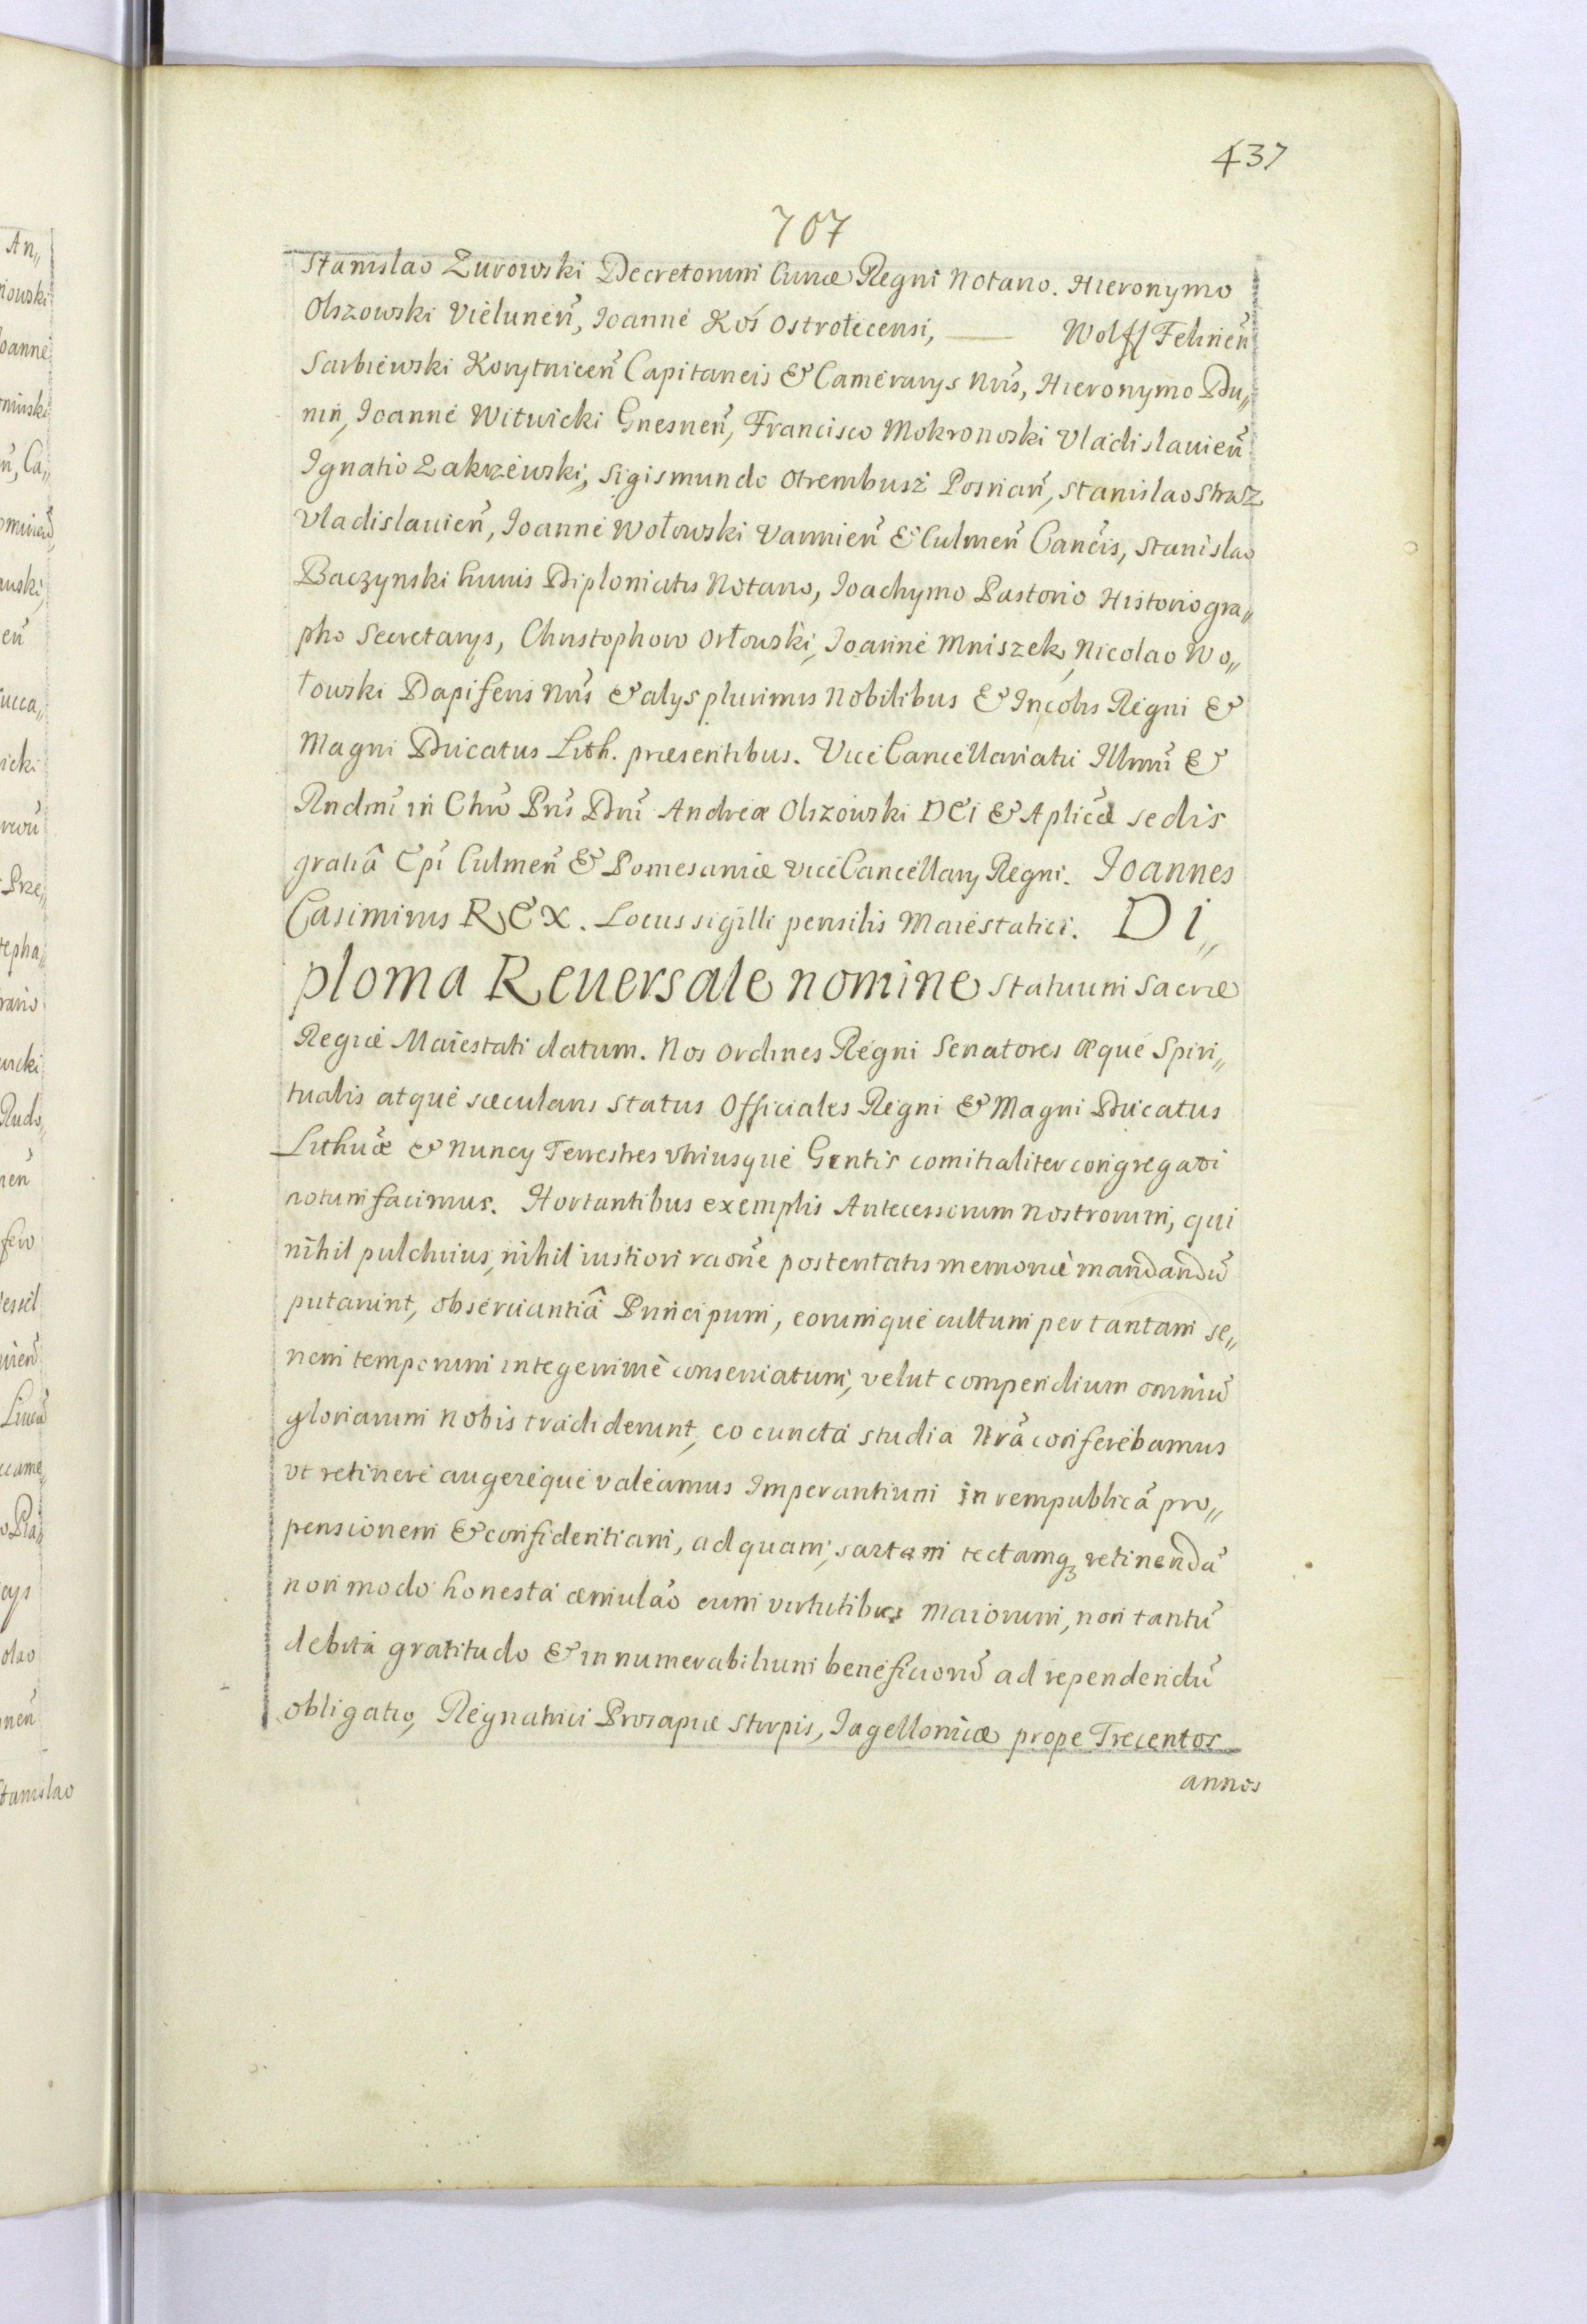 437
707
Stanislao Zurowski Decretorum Curiæ Regni Notario. Hieronymo
Olszowski Vieluneñ, Ioanne Koś Ostrołecensi, — Wolff Felineñ
Sarbiewski Korytniceñ Capitaneis & Camerarys Nrĩs, Hieronymo Du„
nin, Ioanne Witwicki Gnesneñ, Francisco Mokronoski Vladislauieñ
Ignatio Zakrzewski, Sigismundo Otrembusz Posnañ, Stanislao Strasz
Vladislauieñ, Ioanne Wołowski Varmieñ & Culmeñ Cancis, Stanislao
Baczynski huius Diplomatis Notario, Ioachymo Pastorio Historiogra„
pho Secretarys, Christophoro Orłowski, Ioanne Mniszek, Nicolao Wo„
łowski Dapiferis Nrĩs & alys plurimis Nobilibus & Incolis Regni &
Magni Ducatus Lith. præsentibus. Vice Cancellariatu Illmĩ &
Rndmĩ in Chrõ Prĩs Dnĩ Andreæ Olszowski DEI & Aplicæ sedis
gratiâ Epĩ Culmeñ & Pomesaniæ vice Cancellary Regni. Ioannes
Casimirus REX. Locus sigilli pensilis Maiestatici. Di„
ploma Reuersale nomine Statuum Sacræ
Regiæ Maiestati datum. Nos Ordines Regni Senatores æque Spiri„
tualis atque sæcularis status Officiales Regni & Magni Ducatus
Lithuæ & Nuncy Terrestres vtriusque Gentis comitialiter congregati
notum facimus. Hortantibus exemplis Antecessorum nostrorum, qui
nihil pulchrius, nihil iustiori raõne posteritatis memoriæ mandandũ
putarint, obseruantiâ Principum, eorumque cultum per tantam se„
riem temporum integerrimè conseruatum, velut compendium omniũ
gloriarum nobis tradiderunt, eo cuncta studia Nrã conferebamus
vt retinere augereque valeamus Imperantium in rempublicã pro„
pensionem & confidentiam, ad quam, sartam tectamq3 retinendã
non modo honesta æmulaõ cum virtutibus Maiorum, non tantũ
debita gratitudo & innumerabilium beneficiorũ ad rependendũ
obligatio, Regnatrici Prosapiæ Stirpis, Iagellonicæ prope Trecentos
annos